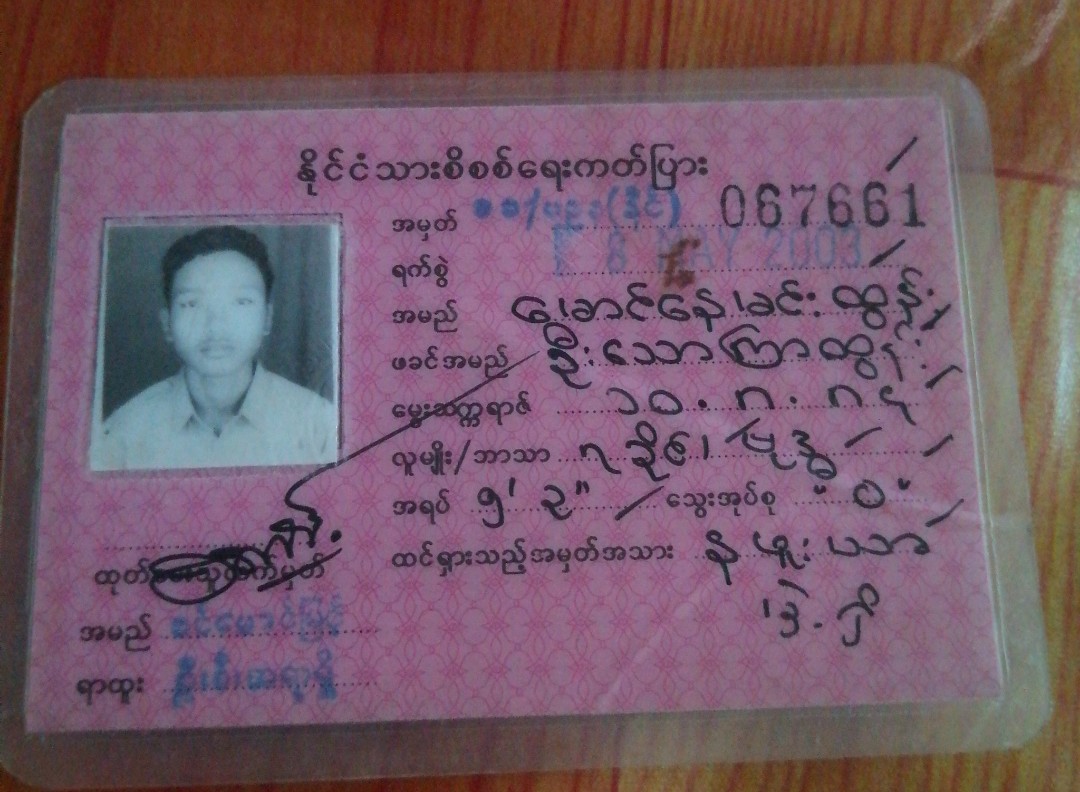 နိုင်ငံသားစိစစ်ရေးကတ်ပြား
အမှတ် (နိုင်) 067661
ရက်စွဲ 8 MAY 2003
အမည် မောင်နေခင်းထွန်း
ဖခင်အမည် ဦးသောကြာထွန်း
မွေးသက္ကရာဇ် ၁၀.၈.
လူမျိုး/ဘာသာ ရခိုင်၊ ဗုဒ္ဓ
အရပ် ၅' သွေးအုပ်စု "O"
ထင်ရှားသည့်အမှတ်အသား နဖူး
ထုတ်ပေးသူလက်မှတ်
အမည် ခင်မောင်မြင့်
ရာထူး ဦးစီးအရာရှိ